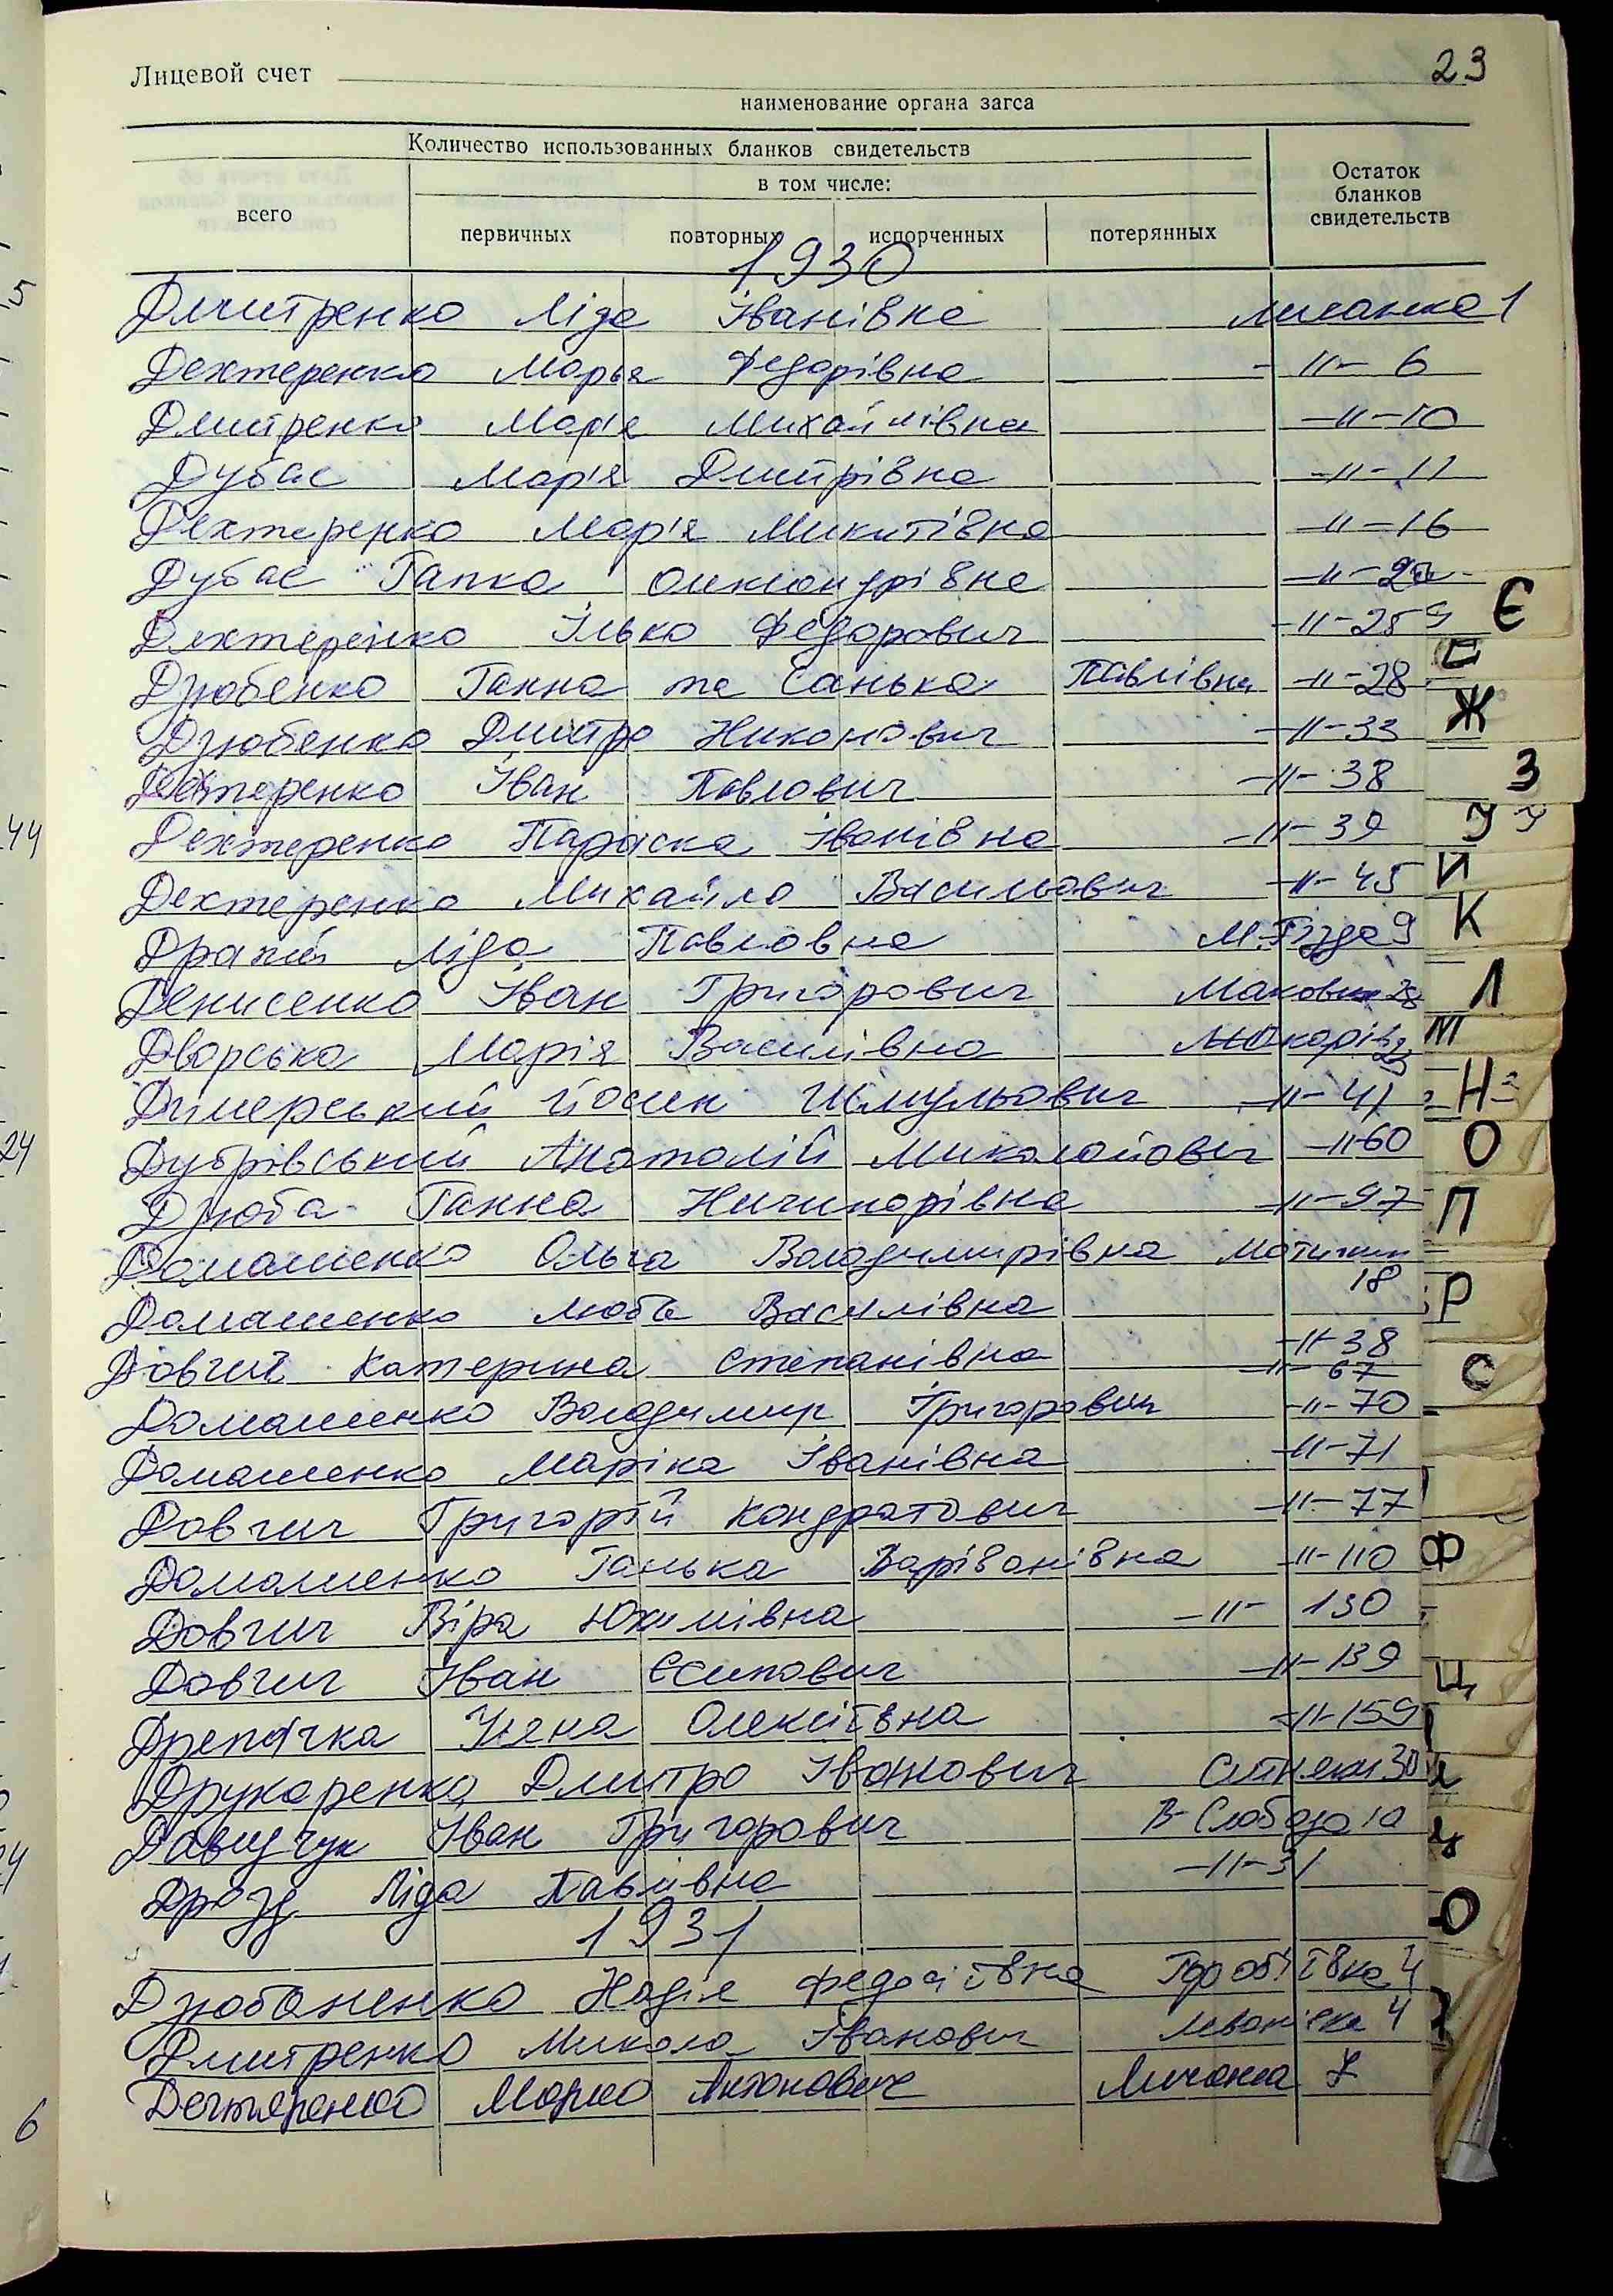 23
Лицевой счет
наименование органа загса
Количество использованных бланков свидетельств
в том числе:
всего
первичных повторных испорченных потерянных
Остаток бланков свидетельств
1930
Дмитренко Ліда Іванівна Личанка 1
Дехтеренко Марья Федорівна -11- 6
Дмитренко Марія Михайлівна -11- 10
Дубас Мар'я Дмитрівна -11- 11
Дехтеренко Мар'я Микитівна -11- 16
Дубас Гапка Олександрівна -11-
Дехтеренко Ілько Федорович -11- 25
Дзюбенко Ганна та Санька Павлівна -11- 28
Дзюбенко Дмитро Никонович -11- 33
Дехтеренко Іван Павлович -11- 38
Дехтеренко Параска Іванівна -11- 39
Дехтеренко Михайло Васильович -11- 45
Драпій Ліда Павловна М. Гузда 9
Денисенко Іван Григорович 28
Дворська Марія Василівна Макарів 23
Димерський Йосип Шмульович -11- 41
Дубрівський Анатолій Миколайович -11- 60
Дзюба Ганна Ничипорівна -11- 97
Домашенко Ольга Володимирівна Мотижин
18
Домашенко Люба Василівна -11- 38
Довгич Катерина Степанівна -11- 67
Домашенко Володимир Григорович -11- 70
Домашенко Маріка Іванівна -11- 71
Довгич Григорій Кондратович -11- 77
Домашенко Ганька Варіванівна -11- 110
Довгич Віра Юхимівна -11- 130
Довгич Іван Єсипович -11- 139
Дрепачка Уляна Олексіївна -11- 159
Друкаренко Дмитро Іванович Ситняки 30
Давидчук Іван Григорович В-Слобода 10
Дрозд Ліда Павлівна -11- 31
1931
Дзюбаненко Надія Федосіївна 4
Дмитренко Микола Іванович 4
Дегтяренко Марко Антонович Личанка
Є
Ж
З
И
К
Л
М
Н
О
П
Р
С
Ф
Ц
Ю